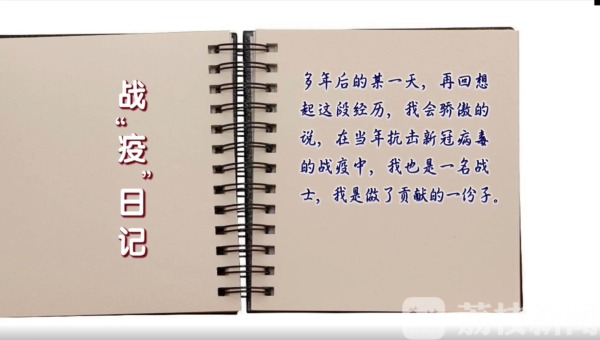 战
“疫”
日
记
多年后的某一天，再回想
起这段经历，我会骄傲的
说，在当年抗击新冠病毒
的战疫中，我也是一名战
士，我是做了贡献的一份子。
荔枝新闻